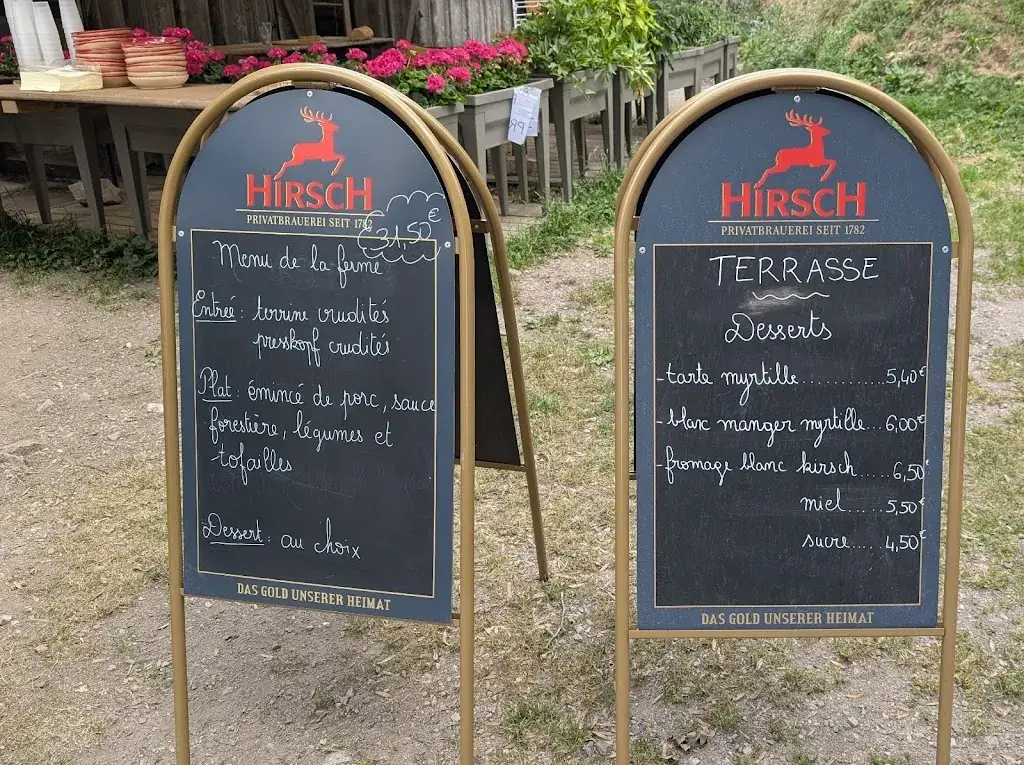 HIRSCH
PRIVATBRAUEREI SEIT 1782
31,50€
Menu de la ferme
Entrée : terrine crudités
presskopf crudités
Plat : émincé de porc, sauce
forestière, légumes et
tofailles
Dessert : au choix
DAS GOLD UNSERER HEIMAT
HIRSCH
PRIVATBRAUEREI SEIT 1782
TERRASSE
Desserts
-tarte myrtille............5,40€
-blanc manger myrtille...6,00€
-fromage blanc kirsch.....6,50€
miel....5,50€
sucre.....4,50€
DAS GOLD UNSERER HEIMAT